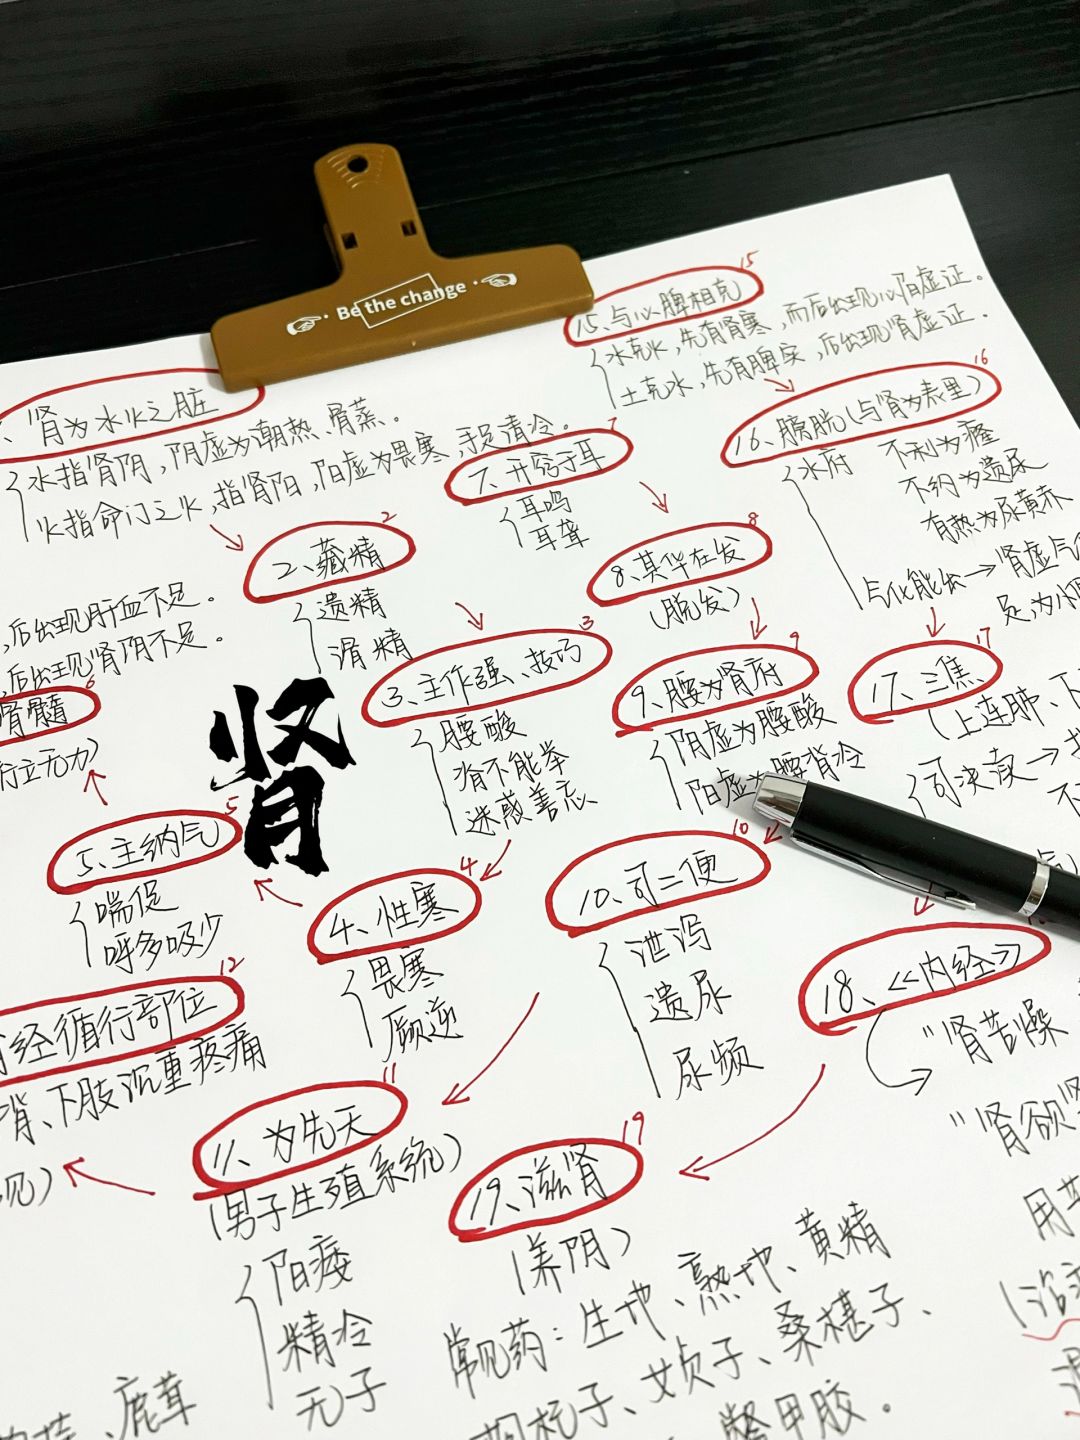 Be the change
15
15、与心脾相克
水克火，先有肾寒，而后出现心阳虚证。
土克水，先有脾实，后出现肾虚证。
16
16、膀胱（与肾为表里）
水府
不利为癃
不约为遗尿
有热为尿黄赤
气化能出→肾虚气化
足，为小
、肾为水火之脏
水指肾阴，阴虚为潮热、骨蒸。
火指命门之火，指肾阳，阳虚为畏寒，手足清冷。
2
2、藏精
遗精
滑精
7
7、开窍于耳
耳鸣
耳聋
8
8、其华在发
（脱发）
，后出现肝血不足。
，后出现肾阴不足。
6
骨髓
行立无力）
3
3、主作强、技巧
腰酸
有不能举
迷惑善忘
9
9、腰为肾府
阴虚为腰酸
阳虚为腰背冷
17
17、三焦
（上连肺、下
司决渎→
不
肾
5
5、主纳气
喘促
呼多吸少
4
4、性寒
畏寒
厥逆
10
10、司二便
泄泻
遗尿
尿频
18、《内经》
"肾苦燥
"肾欲
用苦
12
经循行部位
背、下肢沉重疼痛
11
11、为先天
（男子生殖系统）
阳痿
精冷
无子
19
19、滋肾
（养阴）
常见药：生地、熟地、黄精
枸杞子、女贞子、桑椹子、
鳖甲胶。
、鹿茸